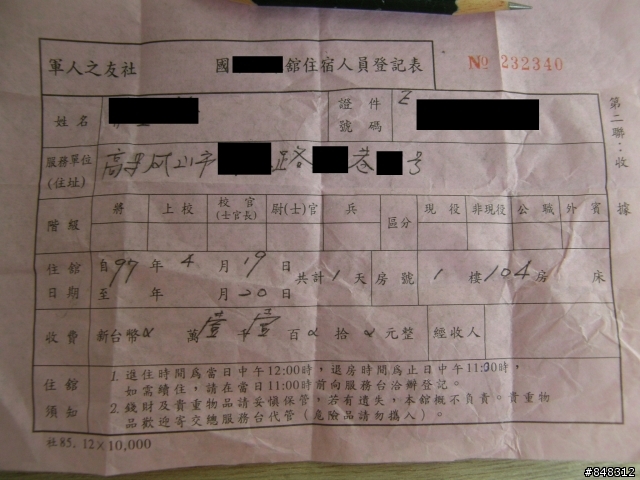 軍人之友社 國 館住宿人員登記表 No 232340
姓名 證件號碼
第二聯：收據
服務單位(住址) 高 鳳山市 路 巷 號
階級 將 上校 校官(士官長) 尉(士)官 兵 區分 現役 非現役 公職 外賓
住館日期 自97年4月19日 共計1天 房號 1樓104房 床
至 年 月20日
收費 新台幣 萬壹千壹百 拾 元整 經收人
住館須知 1. 進住時間為當日中午12:00時，退房時間為止日中午11:30時，
如需續住，請在當日11:00時前向服務台洽辦登記。
2. 錢財及貴重物品請妥慎保管，若有遺失，本館概不負責。貴重物
品歡迎寄交總服務台代管（危險品請勿攜入）。
社85. 12×10,000
#848312